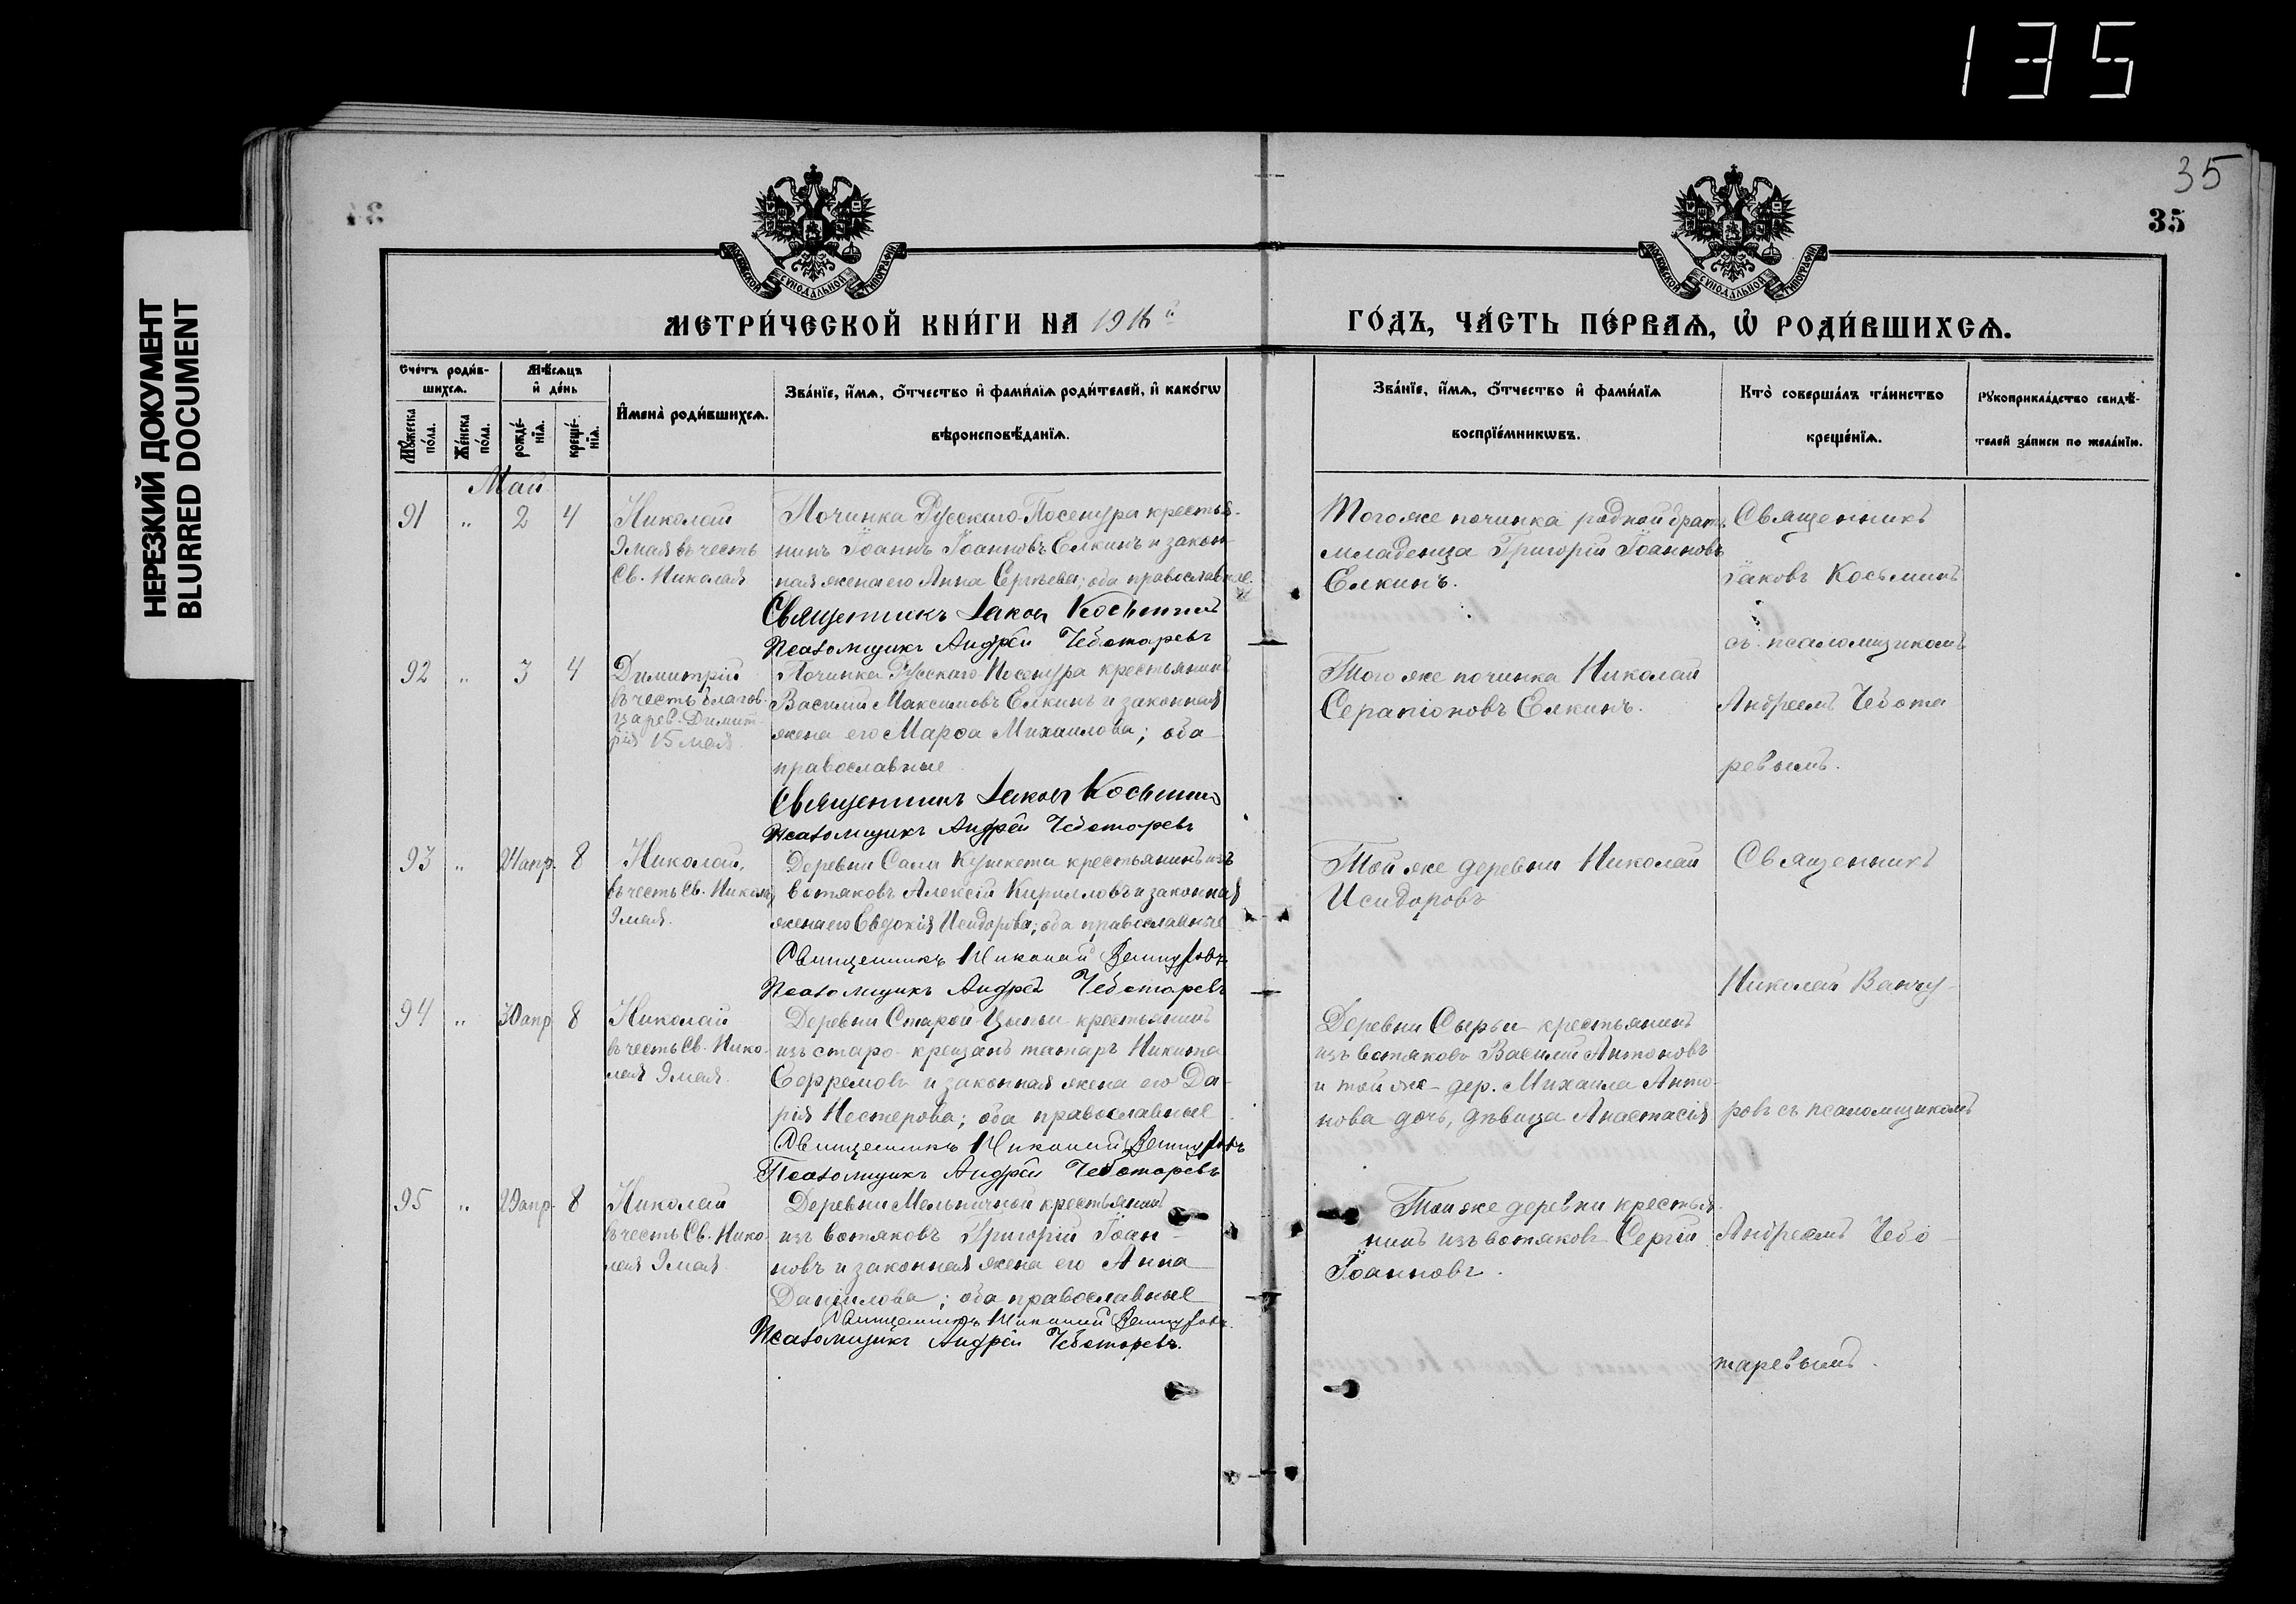 135
НЕРЕЗКИЙ ДОКУМЕНТ
BLURRED DOCUMENT
35
35
МОСКОВСКОЙ СѴНОДАЛЬНОЙ ТИПОГРАФІИ
МОСКОВСКОЙ СѴНОДАЛЬНОЙ ТИПОГРАФІИ
МЕТРИ́ЧЕСКОЙ КНИ́ГИ НА 1916й
ГО́ДЪ, ЧА́СТЬ ПЕ́РВАѦ, Ѽ РОДИ́ВШИХСѦ.
Сче́тъ роди́в-
шихсѧ.
Мꙋ́жеска по́ла.
Же́нска по́ла.
Мѣ́сѧцъ
и҆ де́нь
рожде́-
нїѧ.
креще́-
нїѧ.
И҆мена̀ роди́вшихсѧ.
Зва́нїе, и҆́мѧ, ѻ҆́тчество и҆ фами́лїѧ роди́телей, и҆ како́гѡ
вѣроисповѣ́данїѧ.
Зва́нїе, и҆́мѧ, ѻ҆́тчество и҆ фами́лїѧ
воспрїе́мникѡвъ.
Кто̀ соверша́лъ та́инство
креще́нїѧ.
Рꙋкоприкла́дство свидѣ́-
телей за́писи по жела́нїю.
Май
91 „ 2 4
Николай
9 мая въ честь
Св. Николая
Починка Русскаго-Посепура крестья-
нинъ Іоаннъ Іоанновъ Елкинъ и закон-
ная жена его Анна Сергѣева; оба православные.
Священникъ Іаковъ Косьминъ
Псаломщикъ Андрей Чеботаревъ
Того же починка родной братъ
младенца Григорій Іоанновъ
Елкинъ.
Священникъ
Іаковъ Косьминъ
съ псаломщикомъ
Андреемъ Чебота
ревымъ.
92 „ 3 4
Димитрій
въ честь благов.
царев. Димит-
рія 15 мая
Починка Русскаго-Посепура крестьянинъ
Василій Максимовъ Елкинъ и законная
жена его Марѳа Михаилова; оба
православные
Священникъ Іаковъ Косьминъ
Псаломщикъ Андрей Чеботаревъ
Того же починка Николай
Серапіоновъ Елкинъ.
93 „ 24 апр. 8
Николай,
въ честь Св. Николая
9 мая.
Деревни Сали Кушкета крестьянинъ изъ
вотяковъ Алексій Кирилловъ и законная
жена его Евдокія Исидорова; оба православные
Священникъ Николай Ванчуровъ
Псаломщикъ Андрей Чеботаревъ
Той же деревни Николай
Исидоровъ
Священникъ
Николай Ванчу-
ровъ съ псаломщикомъ
Андреемъ Чебо-
таревымъ.
94 „ 30 апр 8
Николай
въ честь Св. Нико-
лая 9 мая.
Деревни Старой-Цыпьи крестьянинъ
изъ старо-крещанъ татаръ Никита
Ефремовъ и законная жена его Да-
рія Нестерова; оба православные
Священникъ Николай Ванчуровъ
Псаломщикъ Андрей Чеботаревъ
Деревни Сырьи крестьянинъ
изъ вотяковъ Василій Антоновъ
и той же дер. Михаила Анто-
нова дочь, дѣвица Анастасія
95 „ 29 апр. 8
Николай
въ честь Св. Нико-
лая 9 мая.
Деревни Мельничной крестьянинъ
изъ вотяковъ Григорій Іоан-
новъ и законная жена его Анна
Даниилова; оба православные
Священникъ Николай Ванчуровъ.
Псаломщикъ Андрей Чеботаревъ.
Той же деревни крестья-
нинъ изъ вотяковъ Сергій
Іоанновъ.